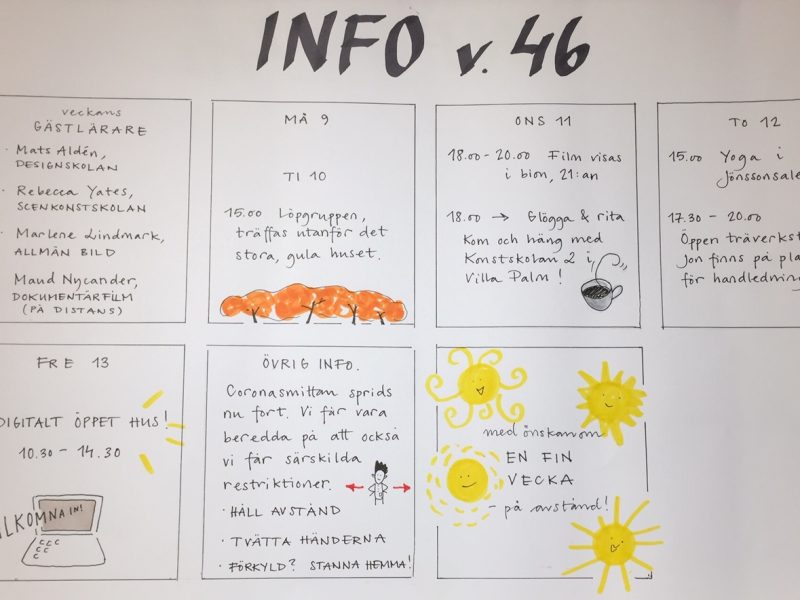 INFO v. 46
veckans
GÄSTLÄRARE
· Mats Aldén,
DESIGNSKOLAN
· Rebecca Yates,
SCENKONSTSKOLAN
· Marlene Lindmark,
ALLMÄN BILD
Maud Nycander,
DOKUMENTÄRFILM
(PÅ DISTANS)
MÅ 9
TI 10
15.00 Löpgruppen,
träffas utanför det
stora, gula huset.
ONS 11
18.00 - 20.00 Film visas
i bion, 21:an
18.00 → Glögga & rita
Kom och häng med
Konstskolan 2 i
Villa Palm!
TO 12
15.00 Yoga i
Jönssonsale
17.30 - 20.00
Öppen träverkst
Jon finns på pla
för handledning
FRE 13
DIGITALT ÖPPET HUS!
10.30 - 14.30
LKOMNA IN!
ÖVRIG INFO.
Coronasmittan sprids
nu fort. Vi får vara
beredda på att också
vi får särskilda
restriktioner.
· HÅLL AVSTÅND
· TVÄTTA HÄNDERNA
· FÖRKYLD? STANNA HEMMA!
med önskan om
EN FIN
VECKA
- på avstånd!